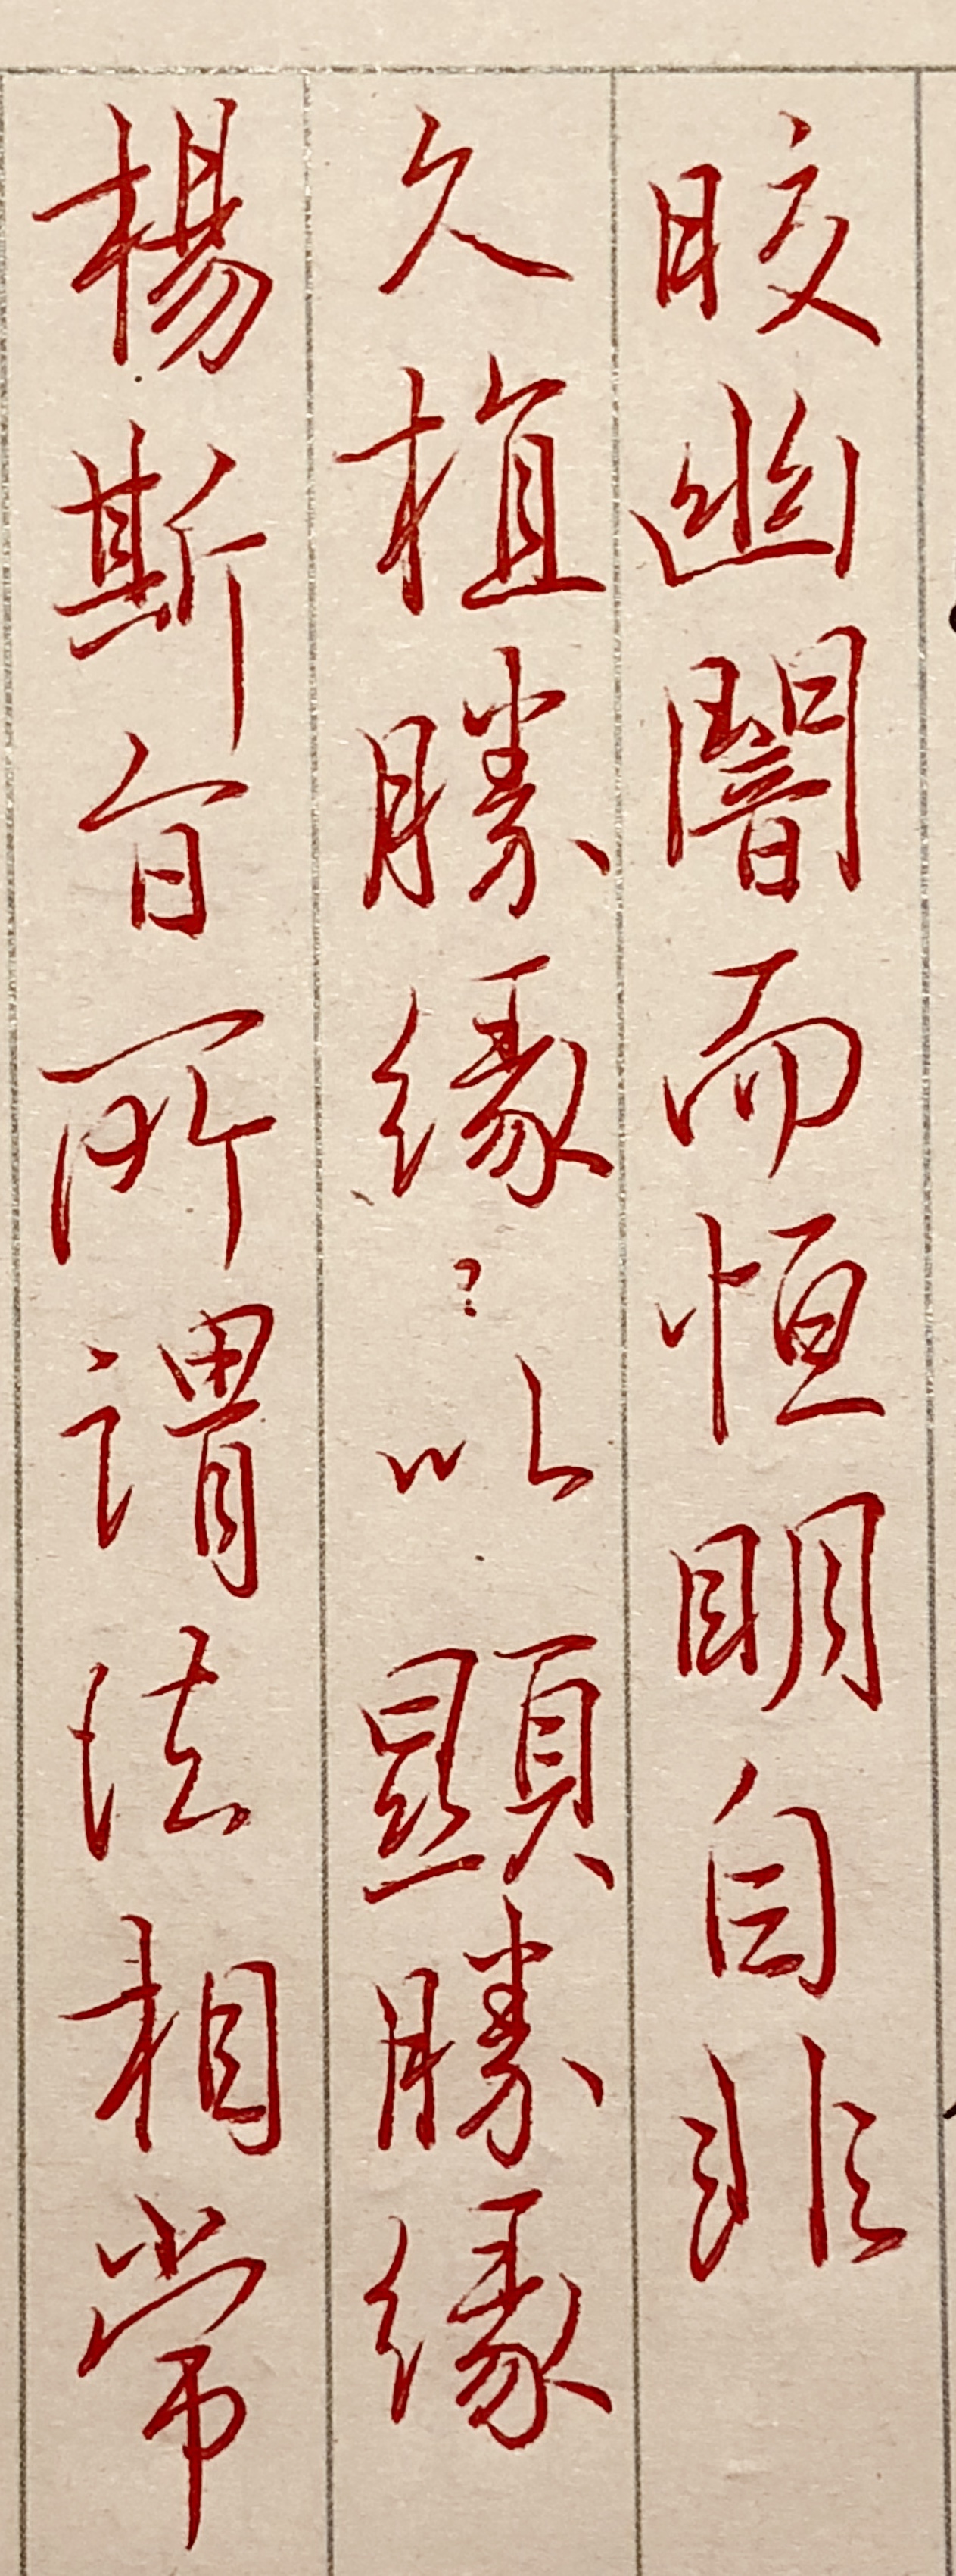 晈幽闇而恒明自非
久植勝緣何以顯勝緣
楊斯旨所謂法相常